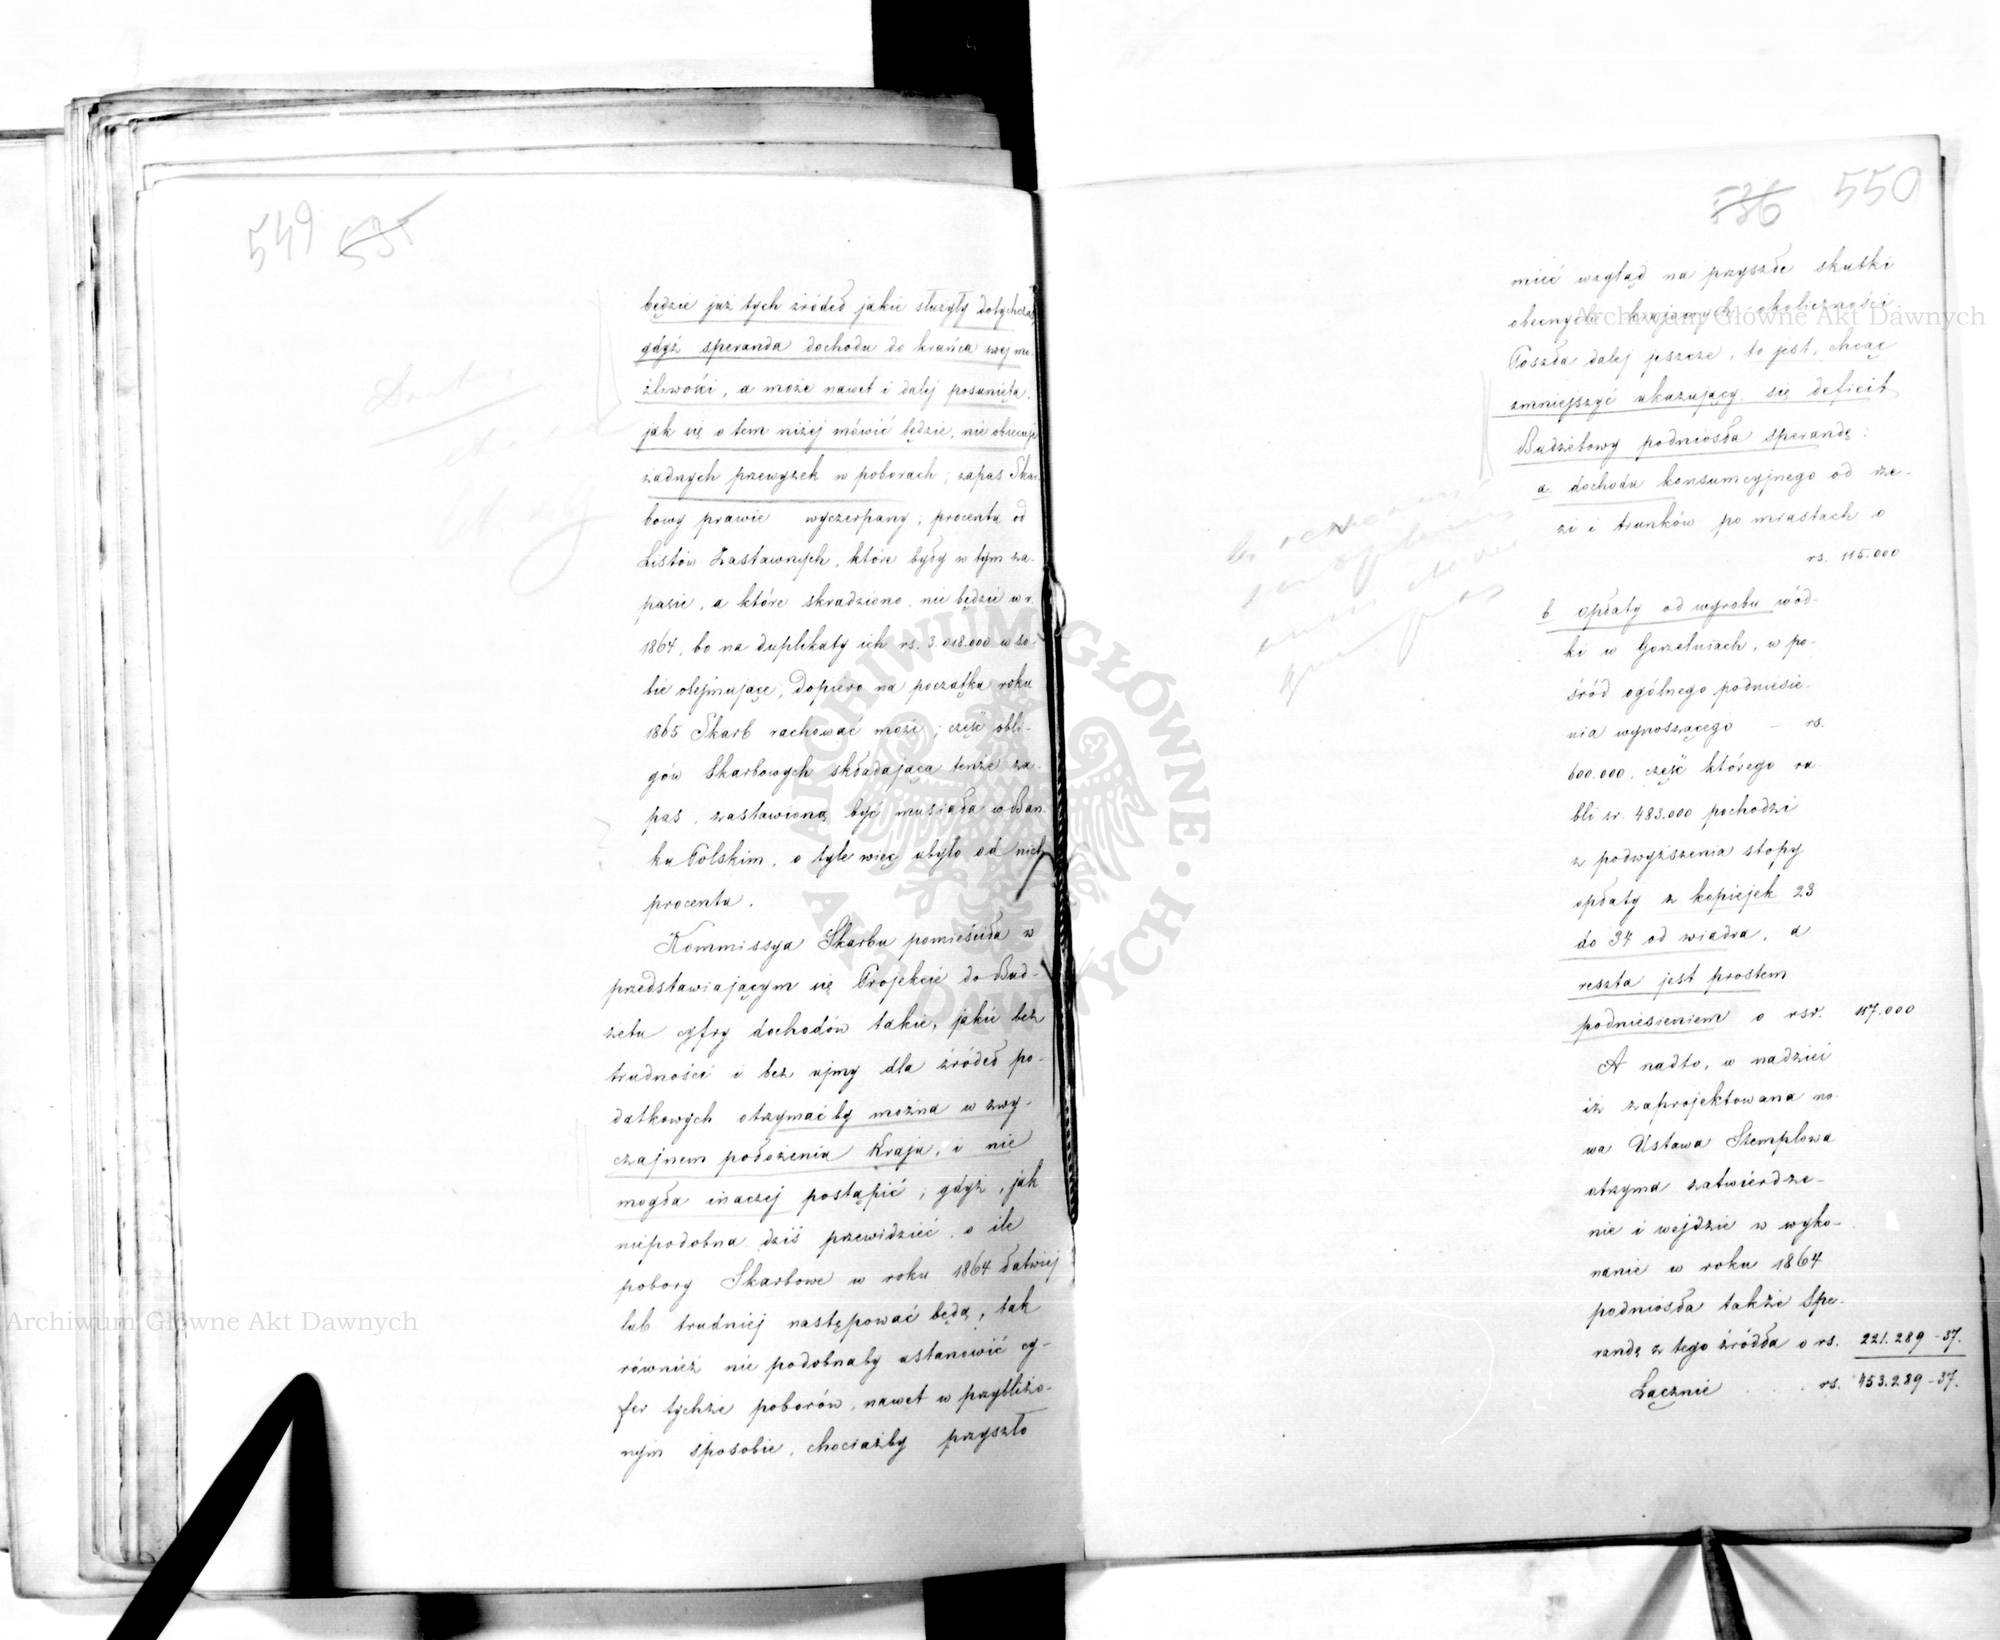 549 535
będzie już tych źródeł jakie służyły dotychczas,
gdyż speranda dochodu do krańca swej mo-
żliwości, a może nawet i dalej posunięta,
jak się o tem niżej mówić będzie, nie obiecuje
żadnych przewyżek w poborach; zapas Skar-
bowy prawie wyczerpany; procentu od
Listów Zastawnych, które były w tym za-
pasie, a które skradziono, nie będzie w r.
1864, bo na duplikaty ich rs. 3.018.000 w so-
bie obejmujące, dopiero na początku roku
1865 Skarb rachować może; część obli-
gów Skarbowych składająca tenże za-
pas, zastawioną być musiała w Ban-
ku Polskim, o tyle więc ubyło od nich
procentu.
Kommissya Skarbu pomieściła w
przedstawiającym się Projekcie do Bud-
żetu cyfry dochodów takie, jakie bez
trudności i bez ujmy dla źródeł po-
datkowych otrzymaćby można w zwy-
czajnem położeniu Kraju, i nie
mogła inaczej postąpić; gdyż, jak
niepodobna dziś przewidzieć, o ile
pobory Skarbowe w roku 1864 łatwiej
lub trudniej następować będą, tak
również nie podobnaby ustanowić cy-
fer tychże poborów, nawet w przybliżo-
nym sposobie, chociażby przyszło
536 550
mieć wzgląd na przyszłe skutki
obecnych krajowych okoliczności.
Poszła dalej jeszcze, to jest, chcąc
zmniejszyć ukazujący się deficit
Budżetowy podniosła sperandę:
a. dochodu konsumcyjnego od rze-
zi i trunków po miastach o
rs. 115.000
b. opłaty od wyrobu wód-
ki w Gorzelniach, w po-
śród ogólnego podniesie-
nia wynoszącego – rs.
600.000, część którego ru-
bli sr. 483.000 pochodzi
z podwyższenia stopy
opłaty z kopiejek 23
do 34 od wiadra, a
reszta jest prostem
podniesieniem o rsr. 117.000
A nadto, w nadziei
iż zaprojektowana no-
wa Ustawa Stemplowa
otrzyma zatwierdze-
nie i wejdzie w wyko-
nanie w roku 1864
podniosła także Spe-
randę z tego źródła o rs. 221.289-37.
Łącznie . . . rs. 453.289-37.
Archiwum Główne Akt Dawnych
Archiwum Główne Akt Dawnych
ARCHIWUM GŁÓWNE AKT DAWNYCH